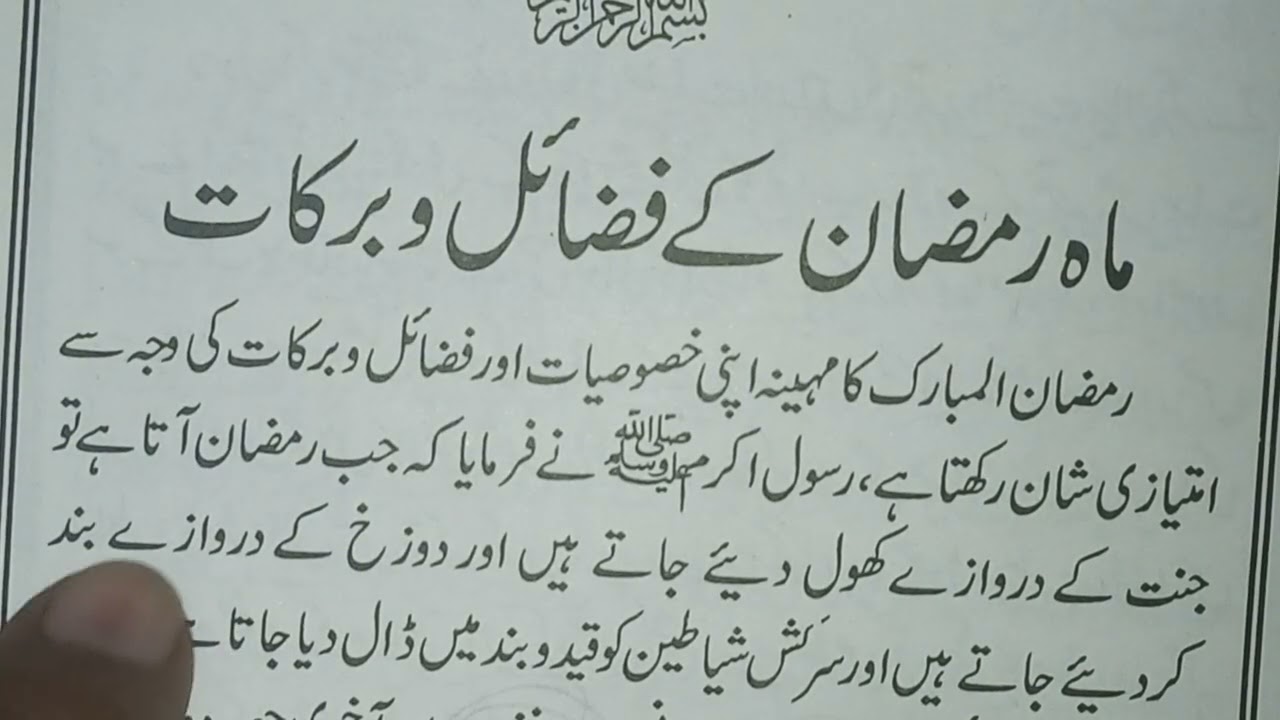 ماہ رمضان کے فضائل و برکات
رمضان المبارک کا مہینہ اپنی خصوصیات اور فضائل و برکات کی وجہ سے
امتیازی شان رکھتا ہے، رسول اکرم ﷺ نے فرمایا کہ جب رمضان آتا ہے تو
جنت کے دروازے کھول دیئے جاتے ہیں اور دوزخ کے دروازے بند
کر دیئے جاتے ہیں اور سرکَش شیاطین کو قید و بند میں ڈال دیا جاتا